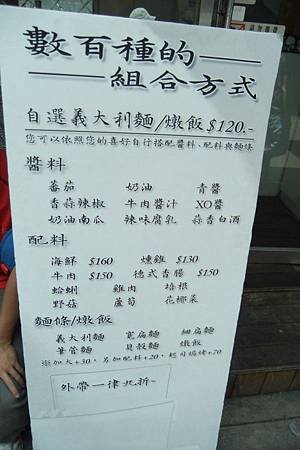 數百種的——
——組合方式
自選義大利麵/燉飯$120.-
您可以依照您的喜好自行搭配醬料、配料與麵條
醬料
番茄 奶油 青醬
香蒜辣椒 牛肉醬汁 XO醬
奶油南瓜 辣味腐乳 蒜香白酒
配料
海鮮 $160 燻雞 $130
牛肉 $150 德式香腸 $150
蛤蜊 雞肉 培根
野菇 蘆筍 花椰菜
麵條/燉飯
義大利麵 寬扁麵 細扁麵
筆管麵 貝殼麵 燉飯
添加大+30，另加配料+20，起司焗烤+70
外帶一律九折~